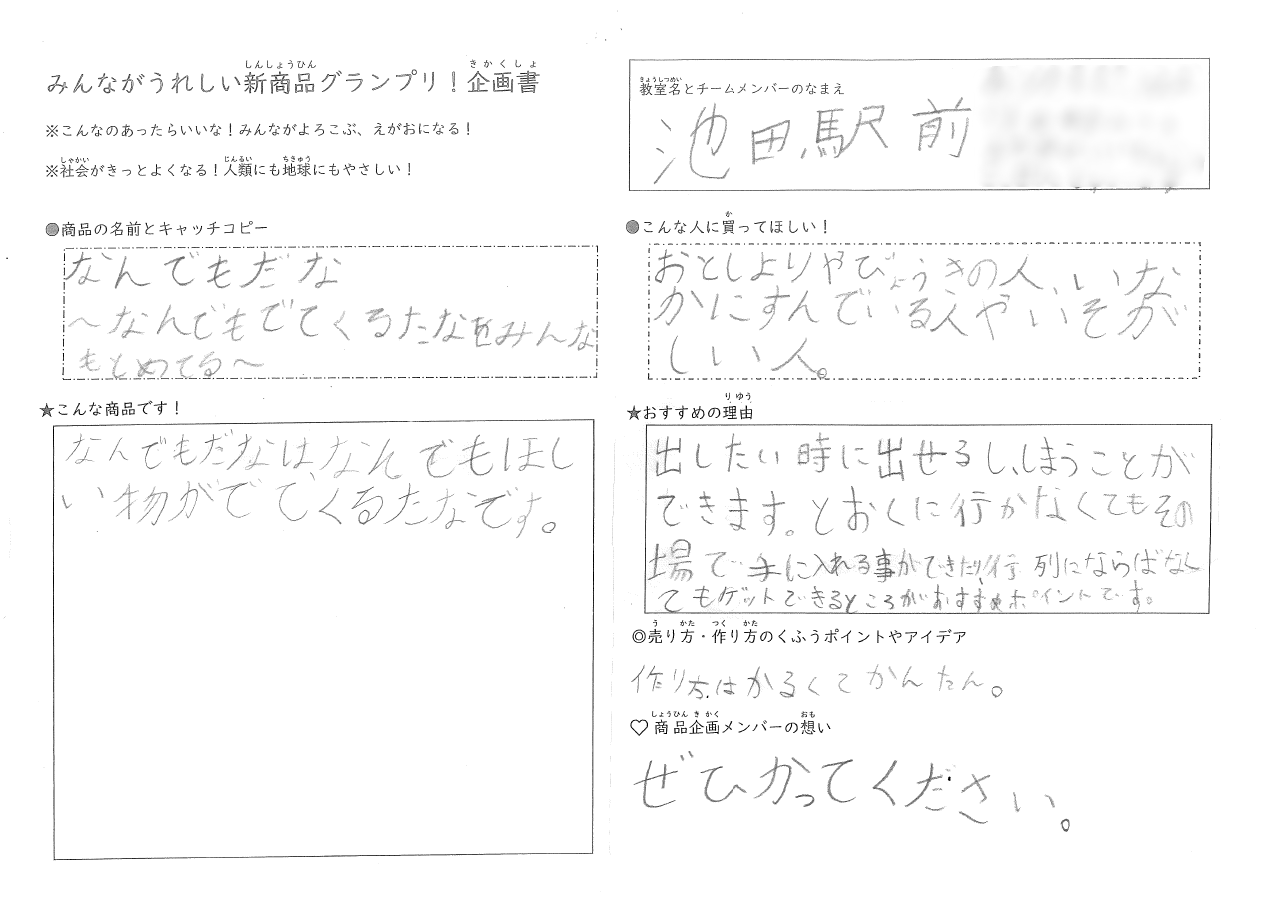 みんながうれしい新商品グランプリ！企画書
しんしょうひん
きかくしょ
※こんなのあったらいいな！みんながよろこぶ、えがおになる！
※社会がきっとよくなる！人類にも地球にもやさしい！
しゃかい
じんるい
ちきゅう
●商品の名前とキャッチコピー
なんでもだな
〜なんでもでてくるたなをみんな
もとめてる〜
★こんな商品です！
なんでもだなは、なんでもほし
い物がでてくるたなです。
きょうしつめい
教室名とチームメンバーのなまえ
池田駅前
か
●こんな人に買ってほしい！
おとしよりやびょうきの人、いな
かにすんでいる人やいそが
しい人。
りゆう
★おすすめの理由
出したい時に出せるし、しまうことが
できます。とおくに行かなくてもその
場で手に入れる事ができたり、行列にならばなく
てもゲットできるところがおすすめポイントです。
う かた つく かた
◎売り方・作り方のくふうポイントやアイデア
作り方はかるくてかんたん。
しょうひん き かく おも
♡商品企画メンバーの想い
ぜひかってください。